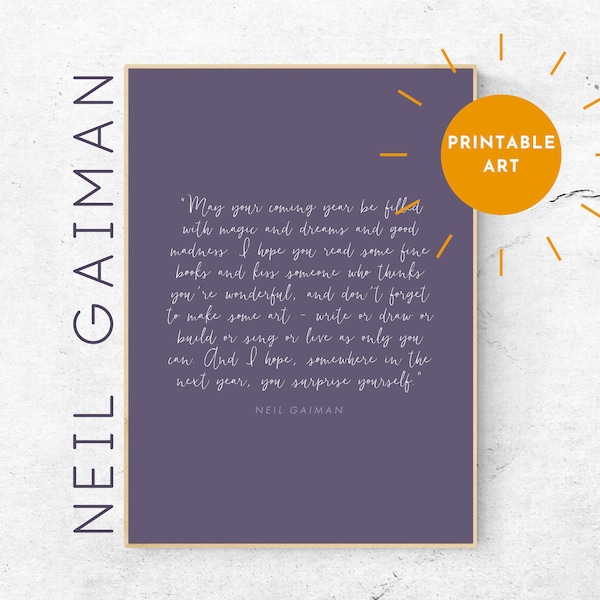 NEIL GAIMAN
PRINTABLE
ART
"May your coming year be filled
with magic and dreams and good
madness. I hope you read some fine
books and kiss someone who thinks
you're wonderful, and don't forget
to make some art - write or draw or
build or sing or live as only you
can. And I hope, somewhere in the
next year, you surprise yourself."
NEIL GAIMAN